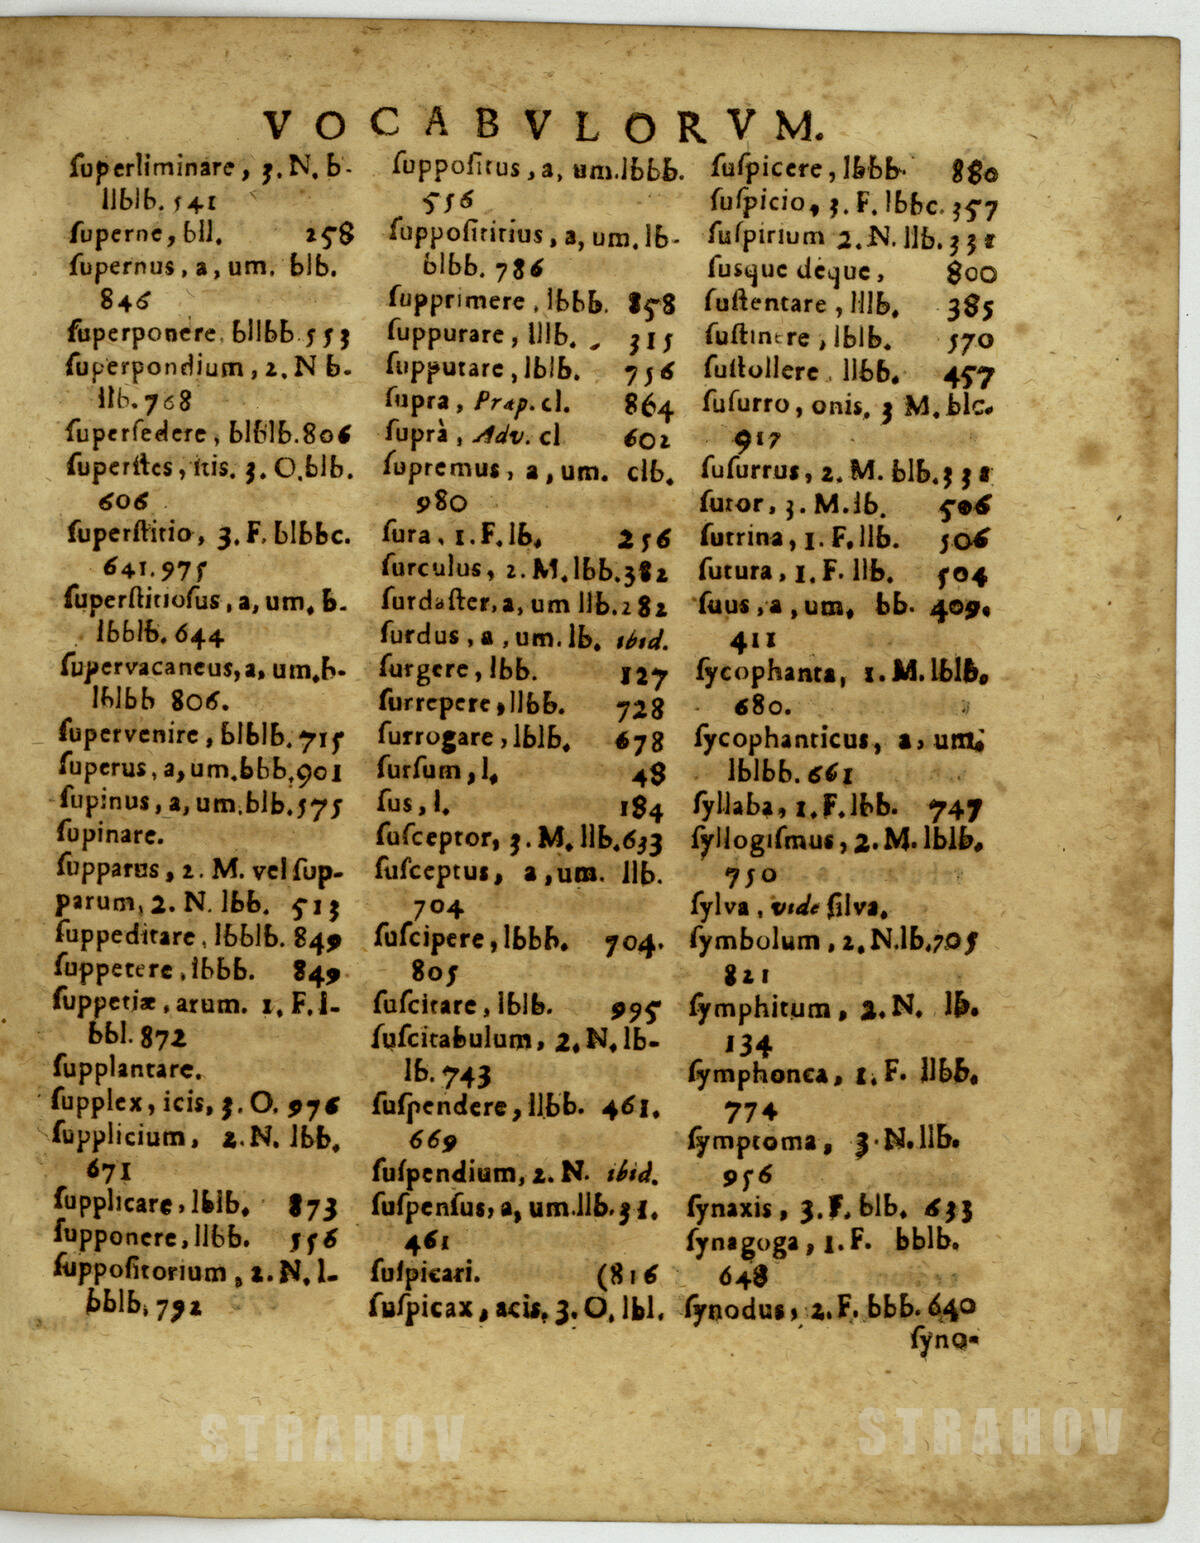 VOCABVLORVM.
ſuperliminare, 3. N. b-
llblb. 541
ſuperne, bll. 258
ſupernus, a, um. blb.
846
ſuperponere, bllbb. 553
ſuperpondium, 2. N b-
llb. 768
ſuperſedere, blblb. 806
ſuperſtes, itis. 3. O. blb.
606
ſuperſtitio, 3. F. blbbc.
641. 975
ſuperſtitioſus, a, um. b-
lbblb. 644
ſupervacaneus, a, um. b-
lblbb 806.
ſupervenire, blblb. 715
ſuperus, a, um. bbb. 901
ſupinus, a, um. blb. 575
ſupinare.
ſupparus, 2. M. vel ſup-
parum, 2. N. lbb. 513
ſuppeditare, lbblb. 849
ſuppetere, lbbb. 849
ſuppetiæ, arum. 1. F. l-
bbl. 872
ſupplantare.
ſupplex, icis, 3. O. 976
ſupplicium, 2. N. lbb.
671
ſupplicare, lblb. 873
ſupponere, llbb. 556
ſuppoſitorium, 2. N. l-
bblb. 792
ſuppoſitus, a, um. lbbb.
556
ſuppoſititius, a, um. lb-
blbb. 786
ſupprimere, lbbb. 858
ſuppurare, lllb. 315
ſupputare, lblb. 756
ſupra, Præp. cl. 864
ſuprà, Adv. cl 602
ſupremus, a, um. clb.
980
ſura, 1. F. lb. 256
ſurculus, 2. M. lbb. 382
ſurdaſter, a, um llb. 282
ſurdus, a, um. lb. ibid.
ſurgere, lbb. 127
ſurrepere, llbb. 728
ſurrogare, lblb. 678
ſurſum, l. 48
ſus, l. 184
ſuſceptor, 3. M. llb. 633
ſuſceptus, a, um. llb.
704
ſuſcipere, lbbb. 704.
805
ſuſcitare, lblb. 995
ſuſcitabulum, 2. N. lb-
lb. 743
ſuſpendere, llbb. 461.
669
ſuſpendium, 2. N. ibid.
ſuſpenſus, a, um. llb. 31.
461
ſuſpicari. (816
ſuſpicax, acis. 3. O. lbl.
ſuſpicere, lbbb. 880
ſuſpicio, 3. F. lbbc. 357
ſuſpirium 2. N. llb. 331
ſusque deque, 800
ſuſtentare, lllb. 385
ſuſtinere, lblb. 570
ſuſtollere llbb. 457
ſuſurro, onis. 3 M. blc.
917
ſuſurrus, 2. M. blb. 331
ſutor, 3. M. lb. 506
ſutrina, 1. F. llb. 506
ſutura, 1. F. llb. 504
ſuus, a, um. bb. 409.
411
ſycophanta, 1. M. lblb.
680.
ſycophanticus, a, um.
lblbb. 661
ſyllaba, 1. F. lbb. 747
ſyllogiſmus, 2. M. lblb.
750
ſylva, vide ſilva.
ſymbolum, 2. N. lb. 705
821
ſymphitum, 2. N. lb.
134
ſymphonea, 1. F. llbb.
774
ſymptoma, 3. N. llb.
956
ſynaxis, 3. F. blb. 633
ſynagoga, 1. F. bblb.
648
ſynodus, 2. F. bbb. 640
ſyno-
STRAHOV STRAHOV